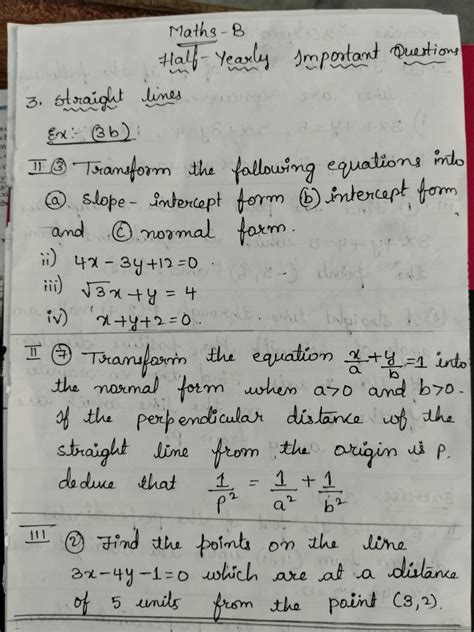 Maths-B
Half-Yearly Important Questions
3. straight lines
Ex:- (3b)
II ③ Transform the following equations into
ⓐ slope-intercept form ⓑ intercept form
and ⓒ normal form.
ii) 4x-3y+12=0
iii) √3x+y=4
iv) x+y+2=0
II ⑦ Transform the equation x/a+y/b=1 into
the normal form when a>0 and b>0.
If the perpendicular distance of the
straight line from the origin is p.
deduce that 1/p² = 1/a² + 1/b²
III ② Find the points on the line
3x-4y-1=0 which are at a distance
of 5 units from the point (3,2).